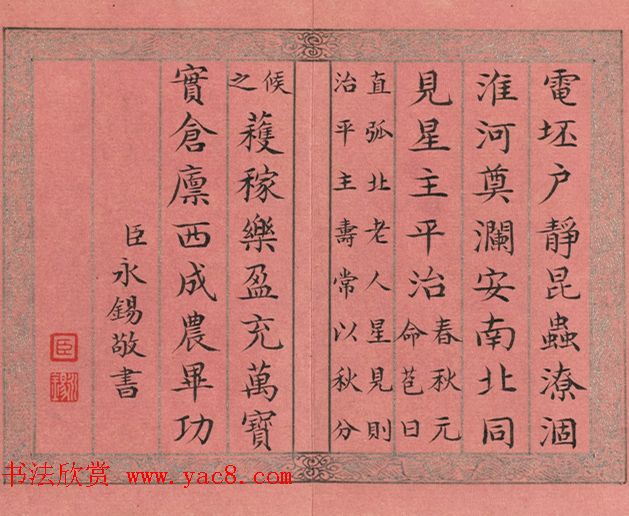 電坯户靜昆蟲潦涸
淮河奠瀾安南北同
見星主平治春秋元
命苞曰
直弧北老人星見則
治平主壽常以秋分
候
之
穫稼樂盈充萬寶
實倉廩西成農畢功
臣永錫敬書
臣
书法欣赏 www.yac8.com